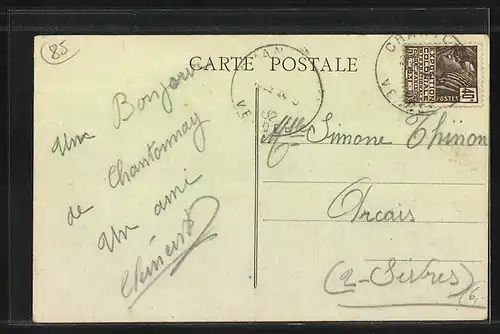 85
CARTE POSTALE
Un Bonjour
de Chantonnay
Un ami
Mlle Simone Thinon
Arcais
(2-Sèvres)
POSTES